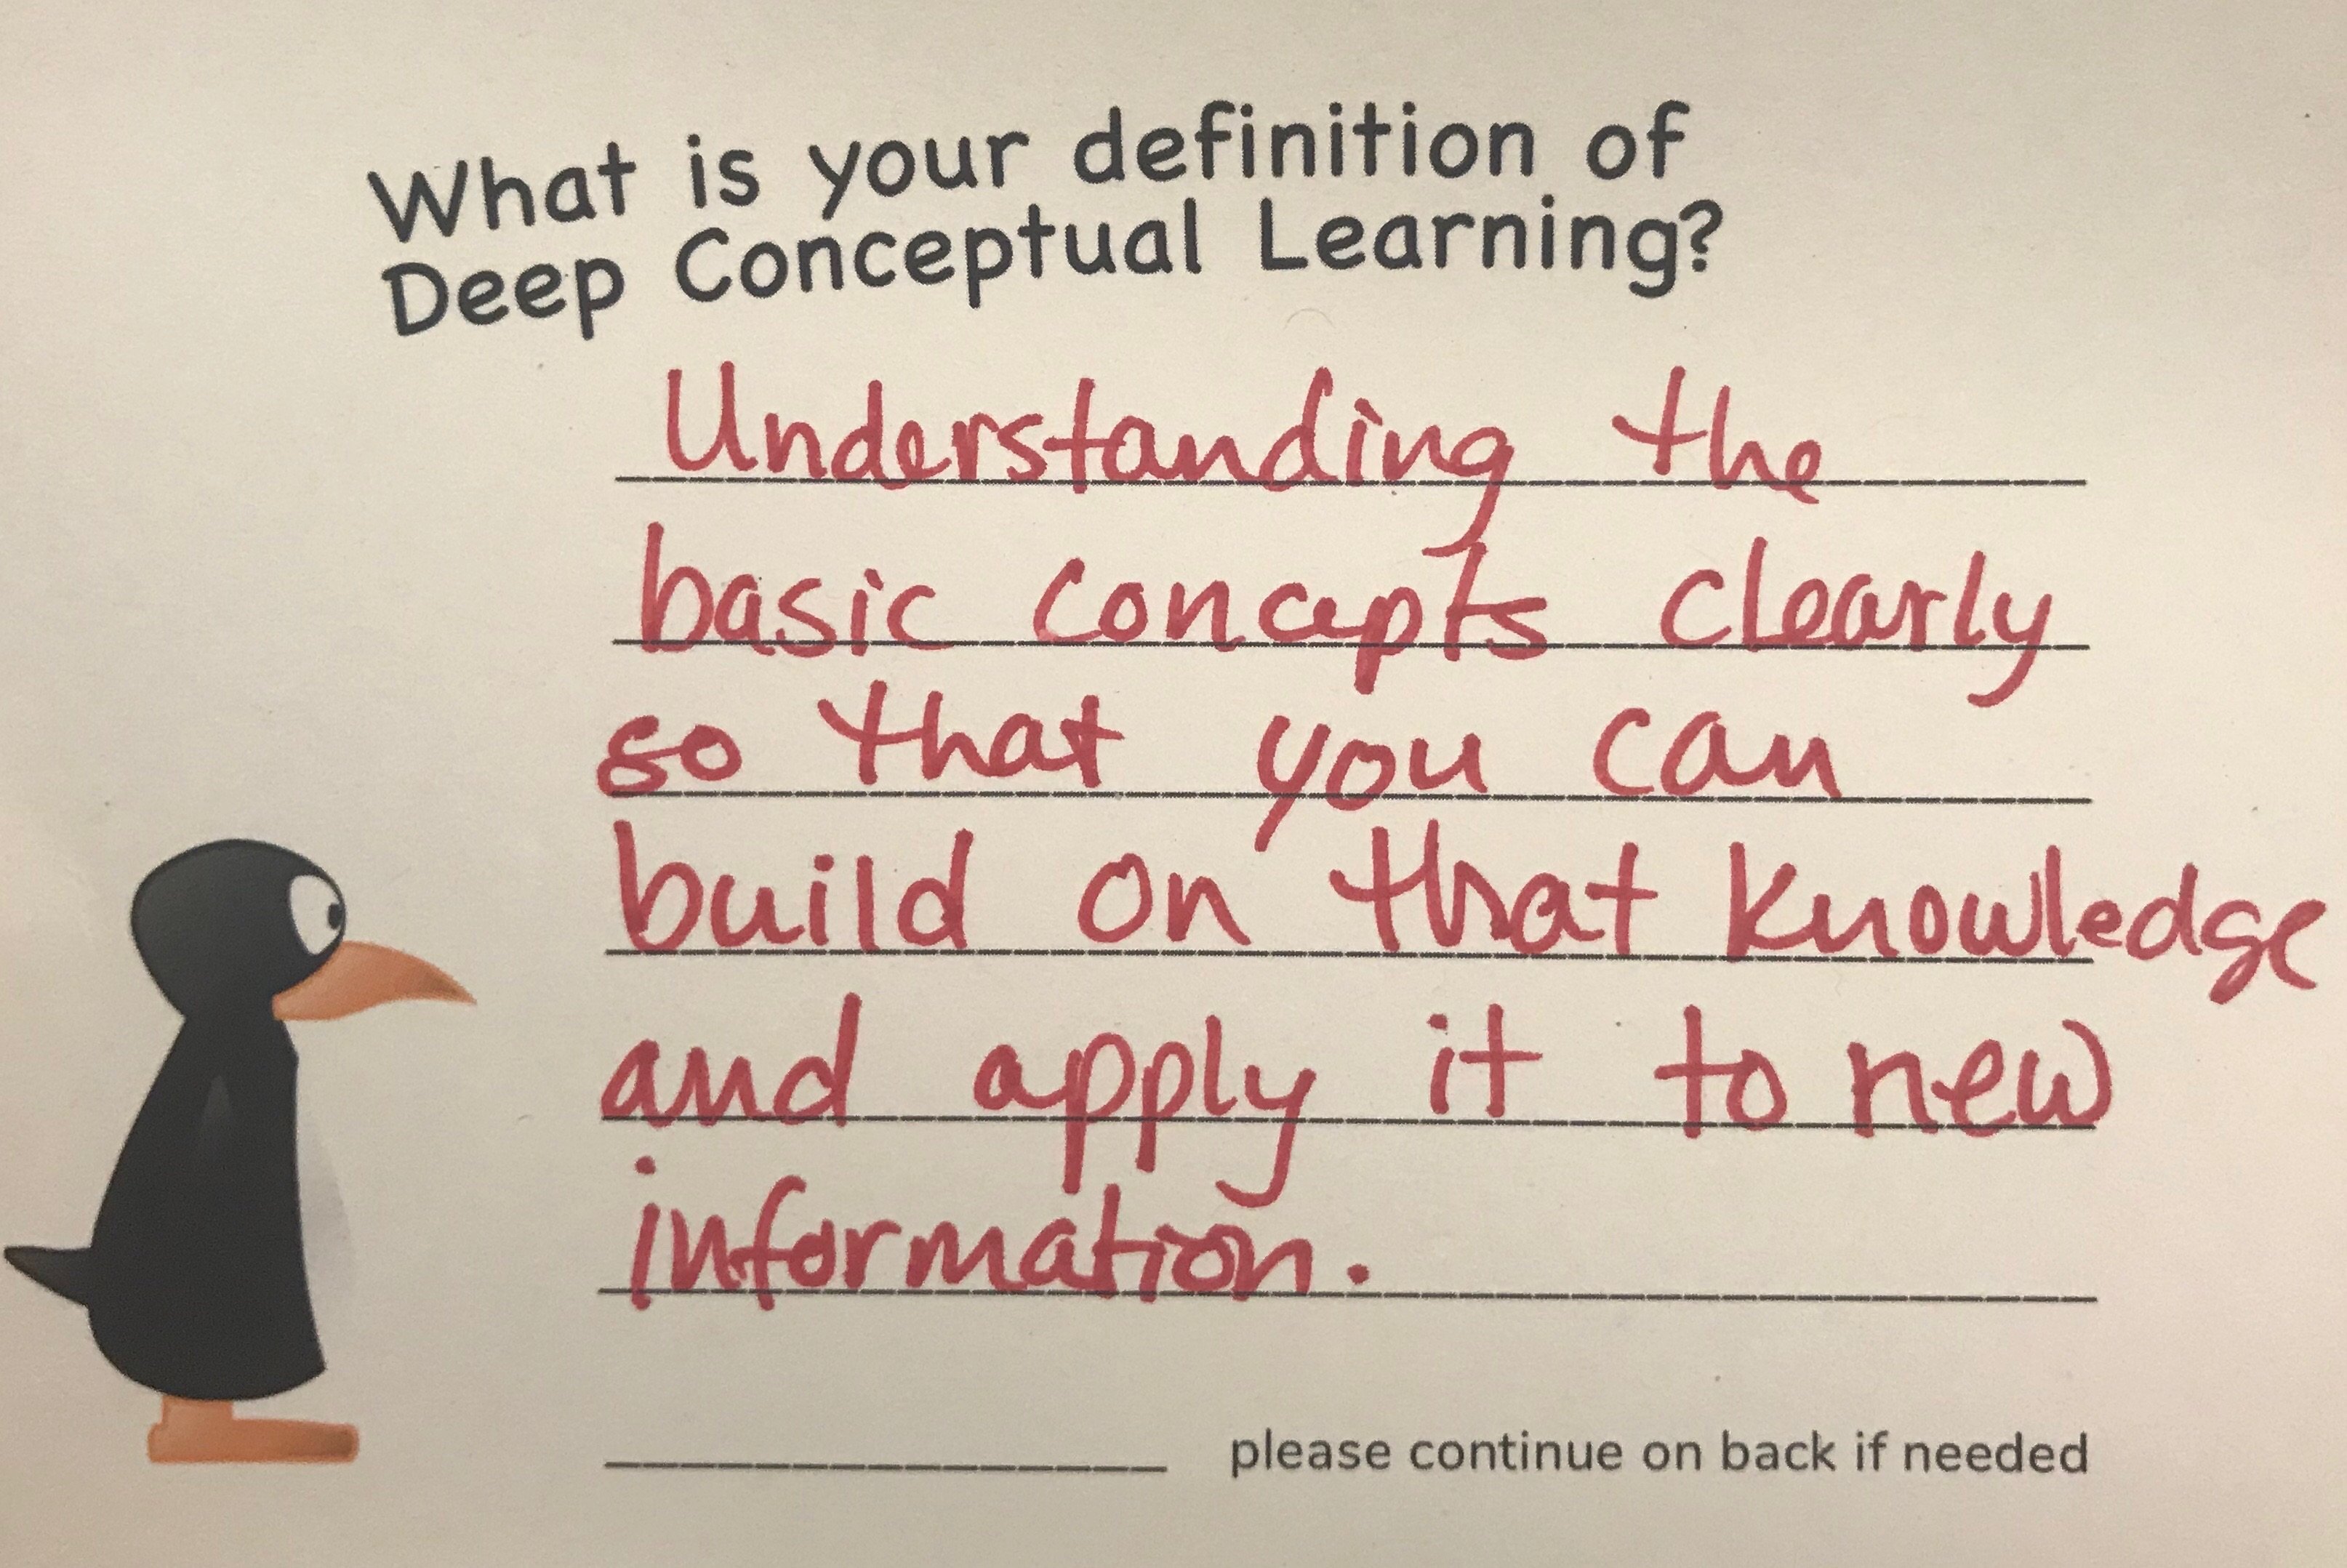 What is your definition of
Deep Conceptual Learning?
Understanding the
basic concepts clearly
so that you can
build on that knowledge
and apply it to new
information.
please continue on back if needed